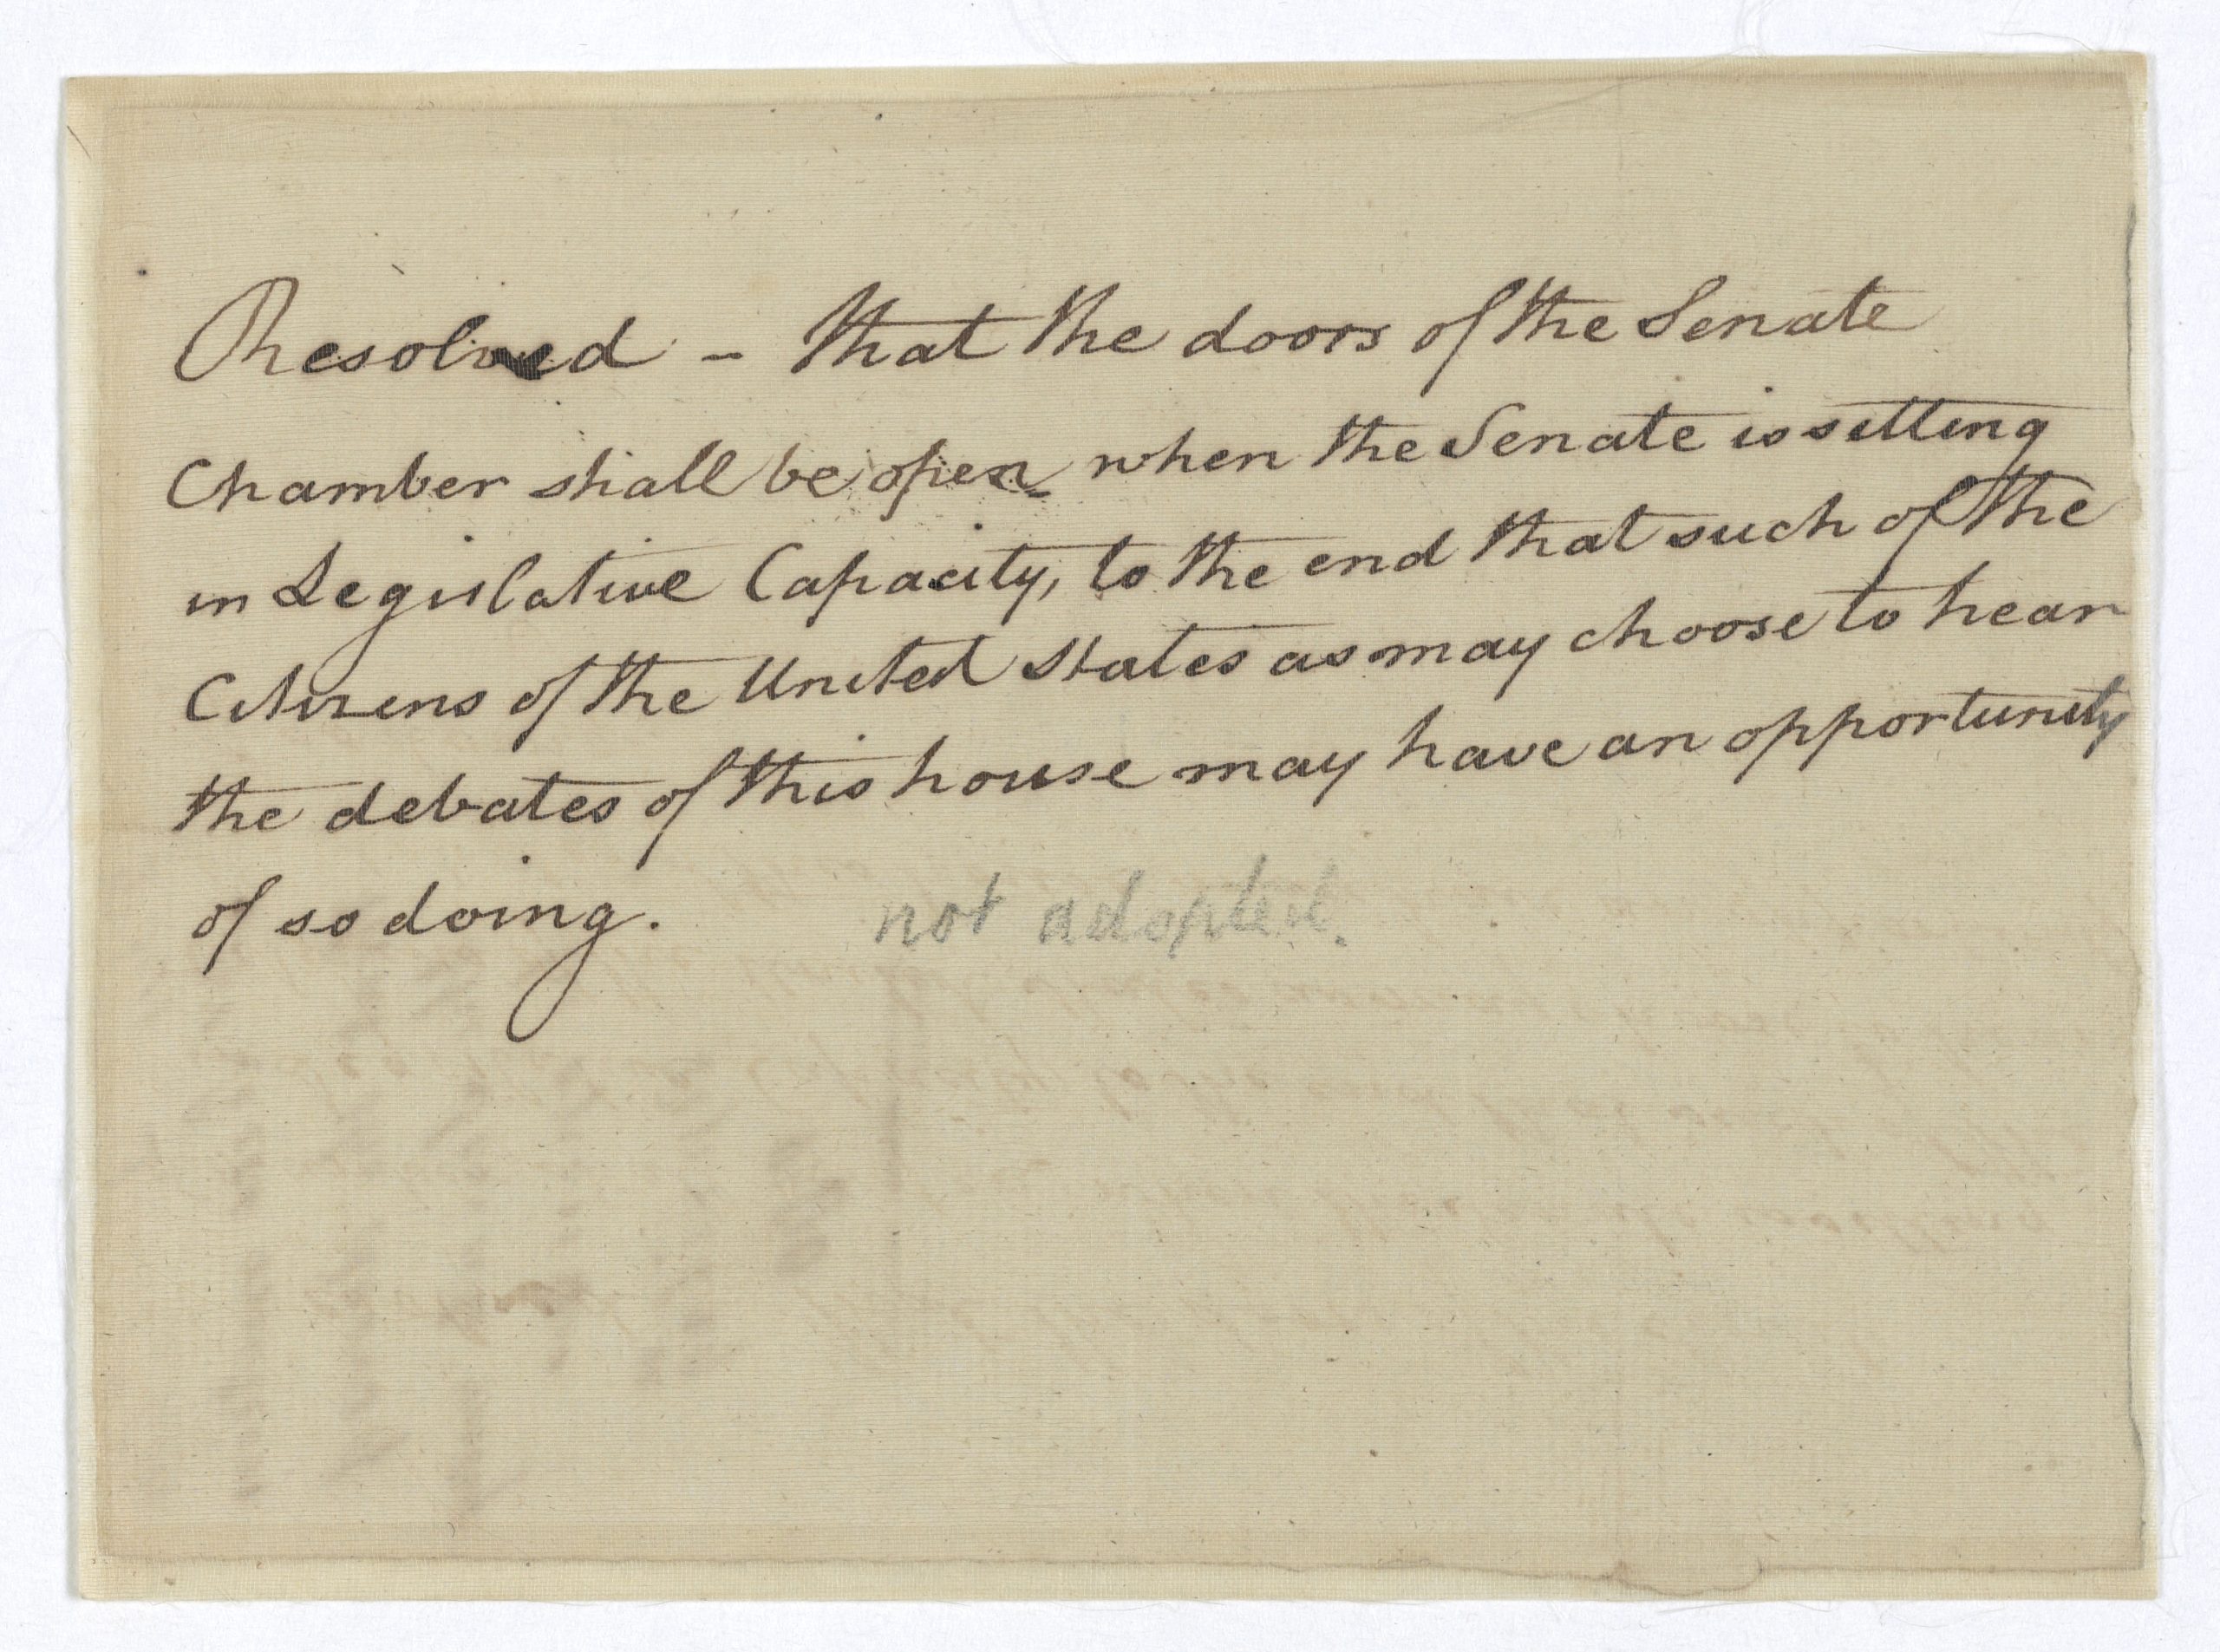 Resolved - that the doors of the Senate
Chamber shall be open when the Senate is sitting
in Legislative Capacity, to the end that such of the
Citizens of the United States as may choose to hear
the debates of this house may have an opportunity
of so doing. not adopted.